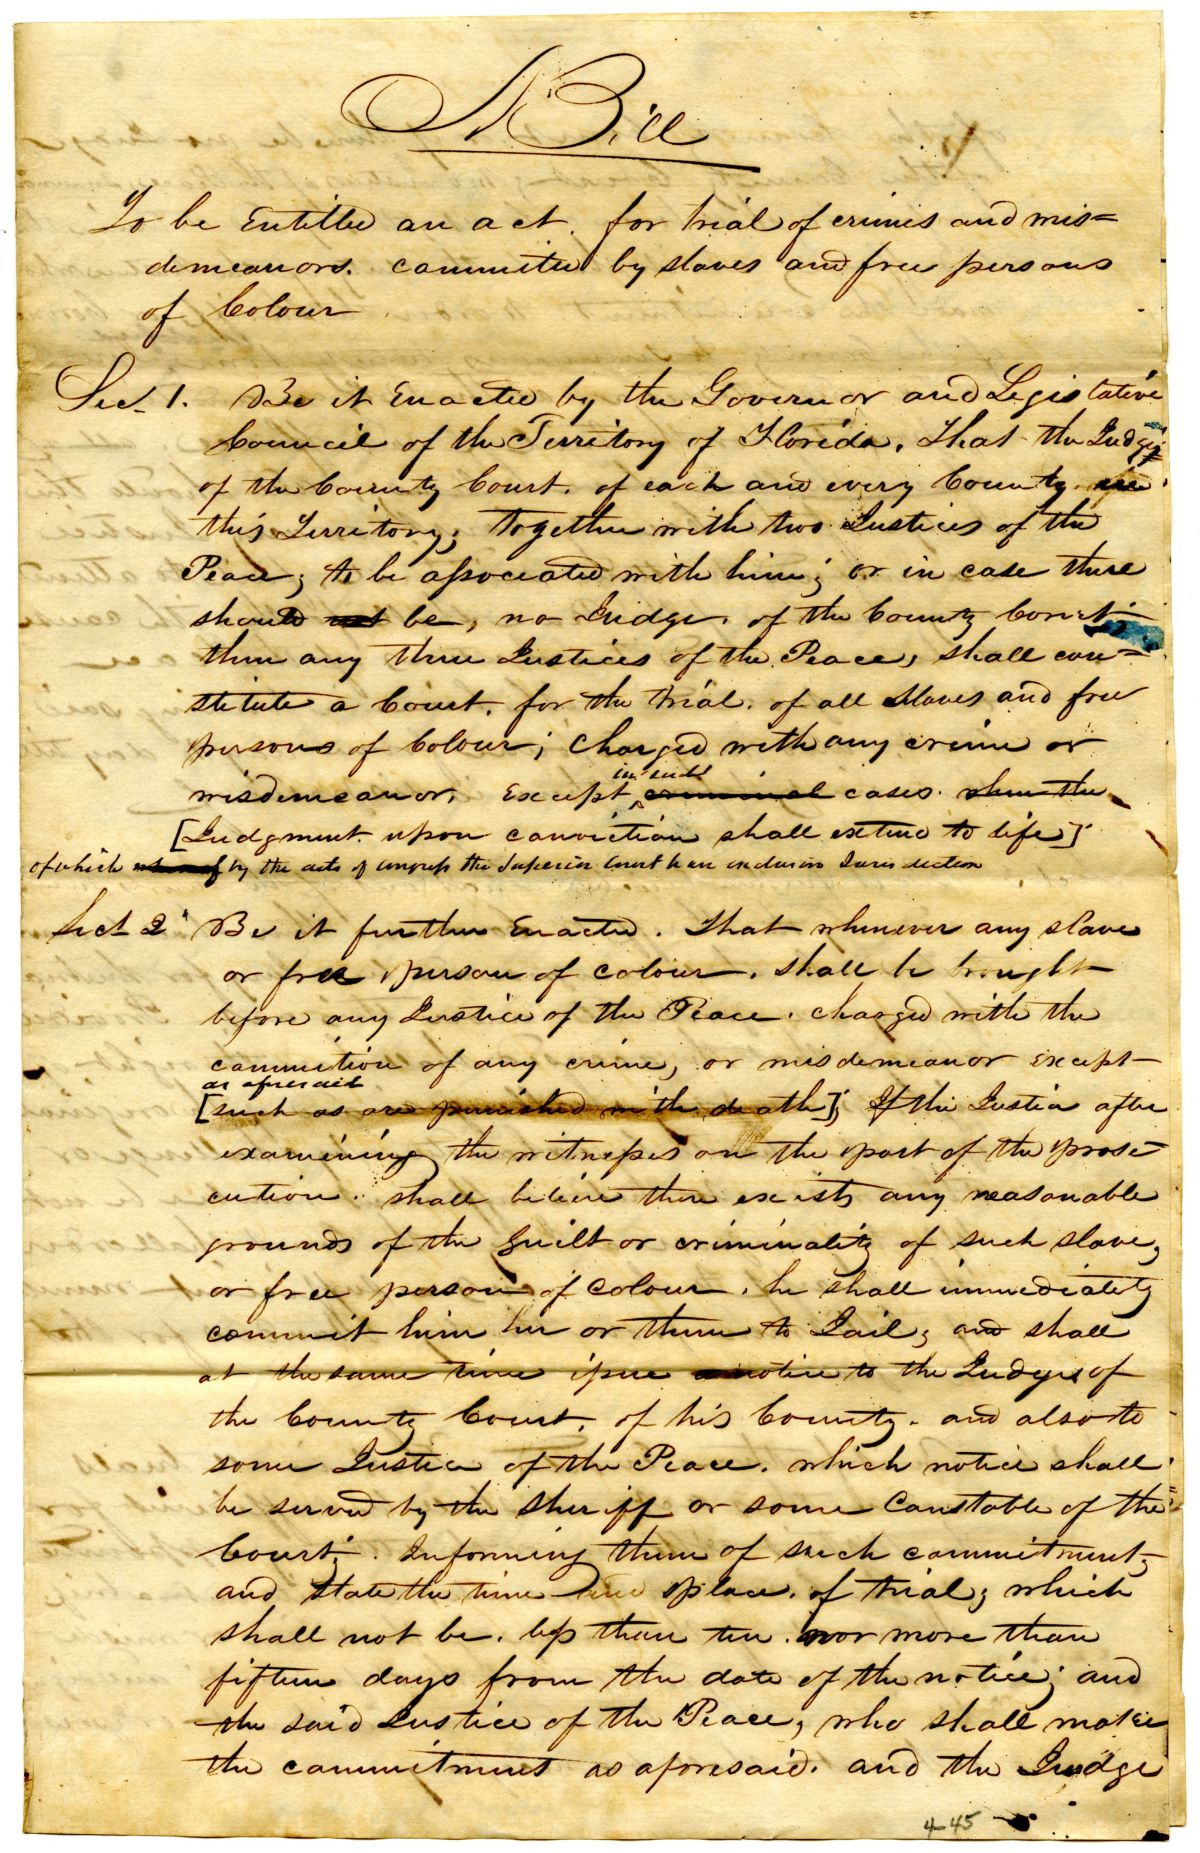 A Bill
To be Entitled an act. for trial of crimes and mis=
demeanors. committed by slaves and free persons
of Colour
Sect. 1. Be it Enacted by the Governor and Legislative
Council of the Territory of Florida. That the Judge
of the County Court. of each and every County in
this Territory; together with two Justices of the
Peace; to be associated with him; or in case there
should not be, no Judge. of the County Court
then any three Justices of the Peace, shall con=
stitute a Court. for the trial. of all Slaves and free
persons of Colour; charged with any crime or
in such
misdemeanor. Except criminal cases. when the
[Judgment upon conviction shall extend to life]
of which by the acts of congress the Superior Court have exclusive Jurisdiction
Sect 2 Be it further Enacted. That whenever any slave
or free person of colour. shall be brought
before any Justice of the Peace. charged with the
commition of any crime, or misdemeanor except
as aforesaid
[such as are punished with death]; If the Justice after
examining the witnesses on the part of the prose=
cution. shall believe there exists any reasonable
grounds of the guilt or criminality of such slave,
or free person of colour. he shall immediately
commit him her or them to Jail; and shall
at the same time issue a notice to the Judges of
the County Court. of his County. and also to
some Justice of the Peace. which notice shall
be served by the Sheriff or some Constable of the
Court; Informing them of such commitment,
and state the time and place. of trial; which
shall not be. less than ten. nor more than
fifteen days from the date of the notice; and
the said Justice of the Peace, who shall make
the commitment as aforesaid. and the Judge
4-45